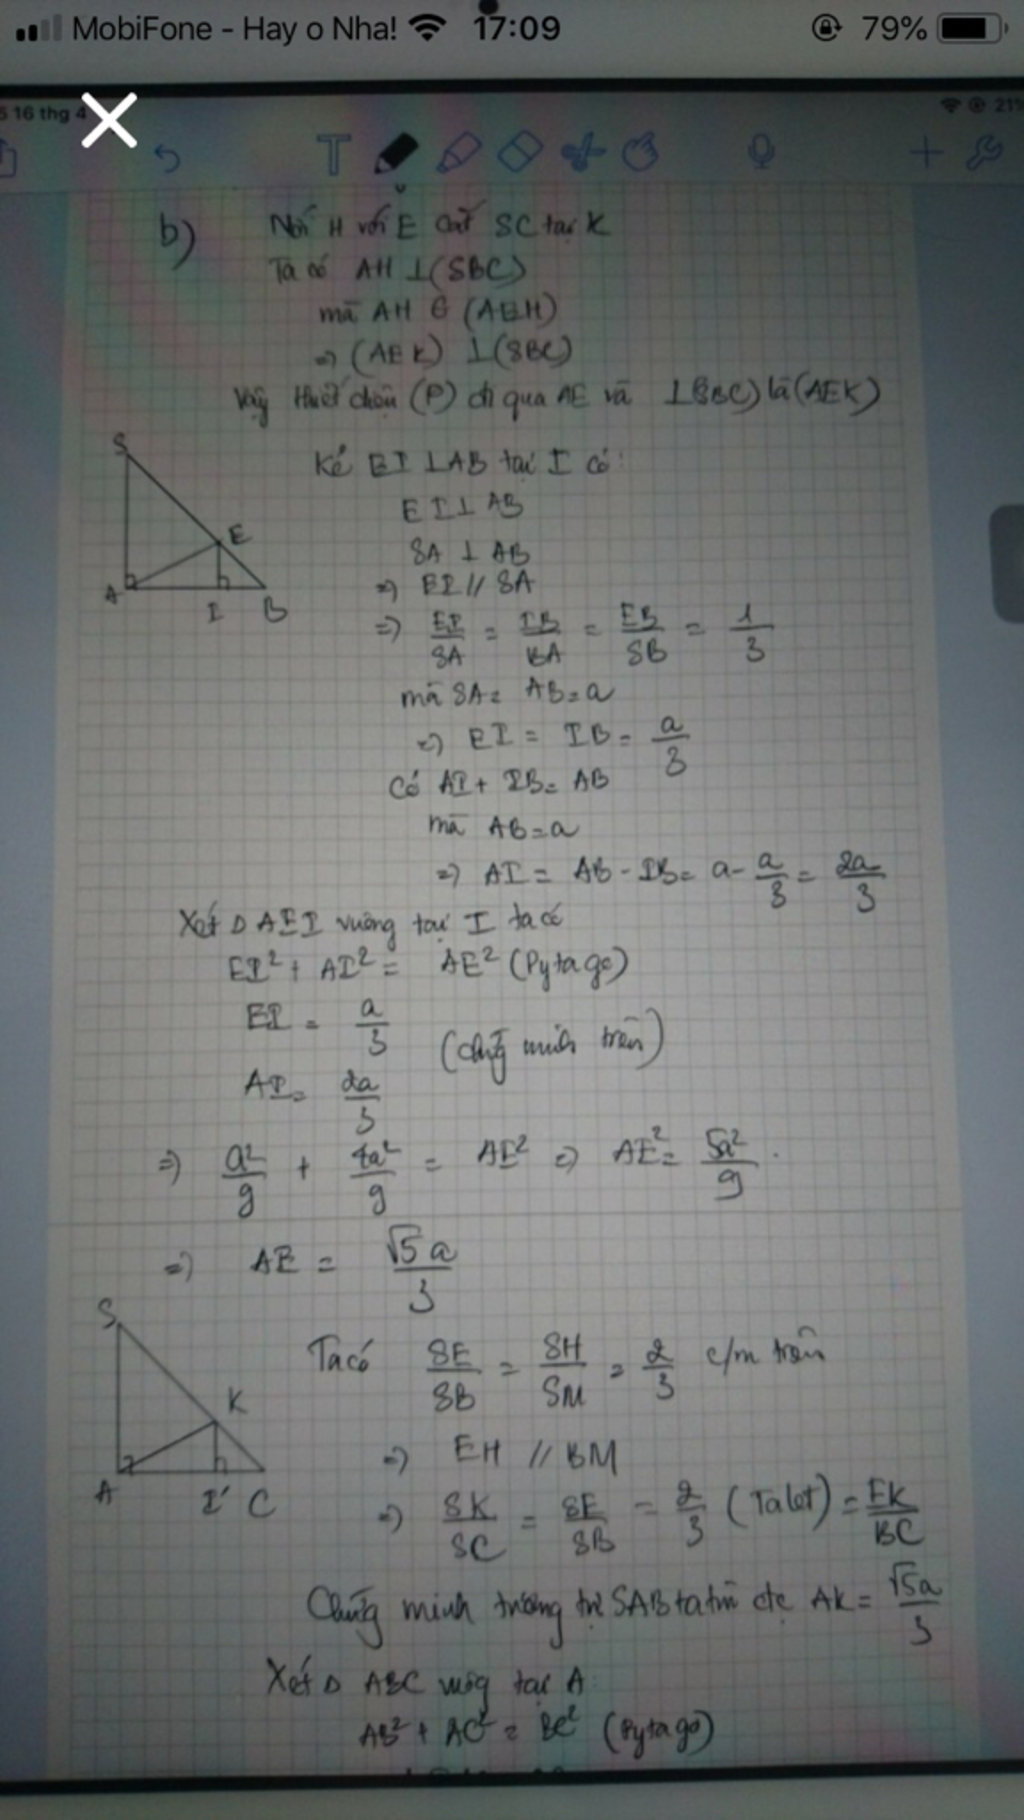 MobiFone - Hay o Nha! 17:09 79%
16 thg 4 21%
T
b) Nối H với E cắt SC tại K
Ta có AH ⊥ (SBC)
mà AH ∈ (AEH)
=> (AEK) ⊥ (SBC)
Vậy thiết diện (P) đi qua AE và ⊥ (SBC) là (AEK)
S
E
A
I
B
Kẻ EI ⊥ AB tại I có:
EI ⊥ AB
SA ⊥ AB
=> EI // SA
=> EI/SA = IB/BA = EB/SB = 1/3
mà SA = AB = a
=> EI = IB = a/3
Có AI + IB = AB
mà AB = a
=> AI = AB - IB = a - a/3 = 2a/3
Xét Δ AEI vuông tại I ta có
EI² + AI² = AE² (Pytago)
EI = a/3
AI = 2a/3
(chứng minh trên)
=> a²/9 + 4a²/9 = AE² => AE² = 5a²/9
=> AE = √5a/3
S
K
A
I'
C
Ta có SE/SB = SH/SM = 2/3 c/m trên
=> EH // BM
=> SK/SC = SE/SB = 2/3 (Talet) = EK/BC
Chứng minh tương tự SAB ta tìm đc AK = √5a/3
Xét Δ ABC vuông tại A
AB² + AC² = BC² (Pytago)